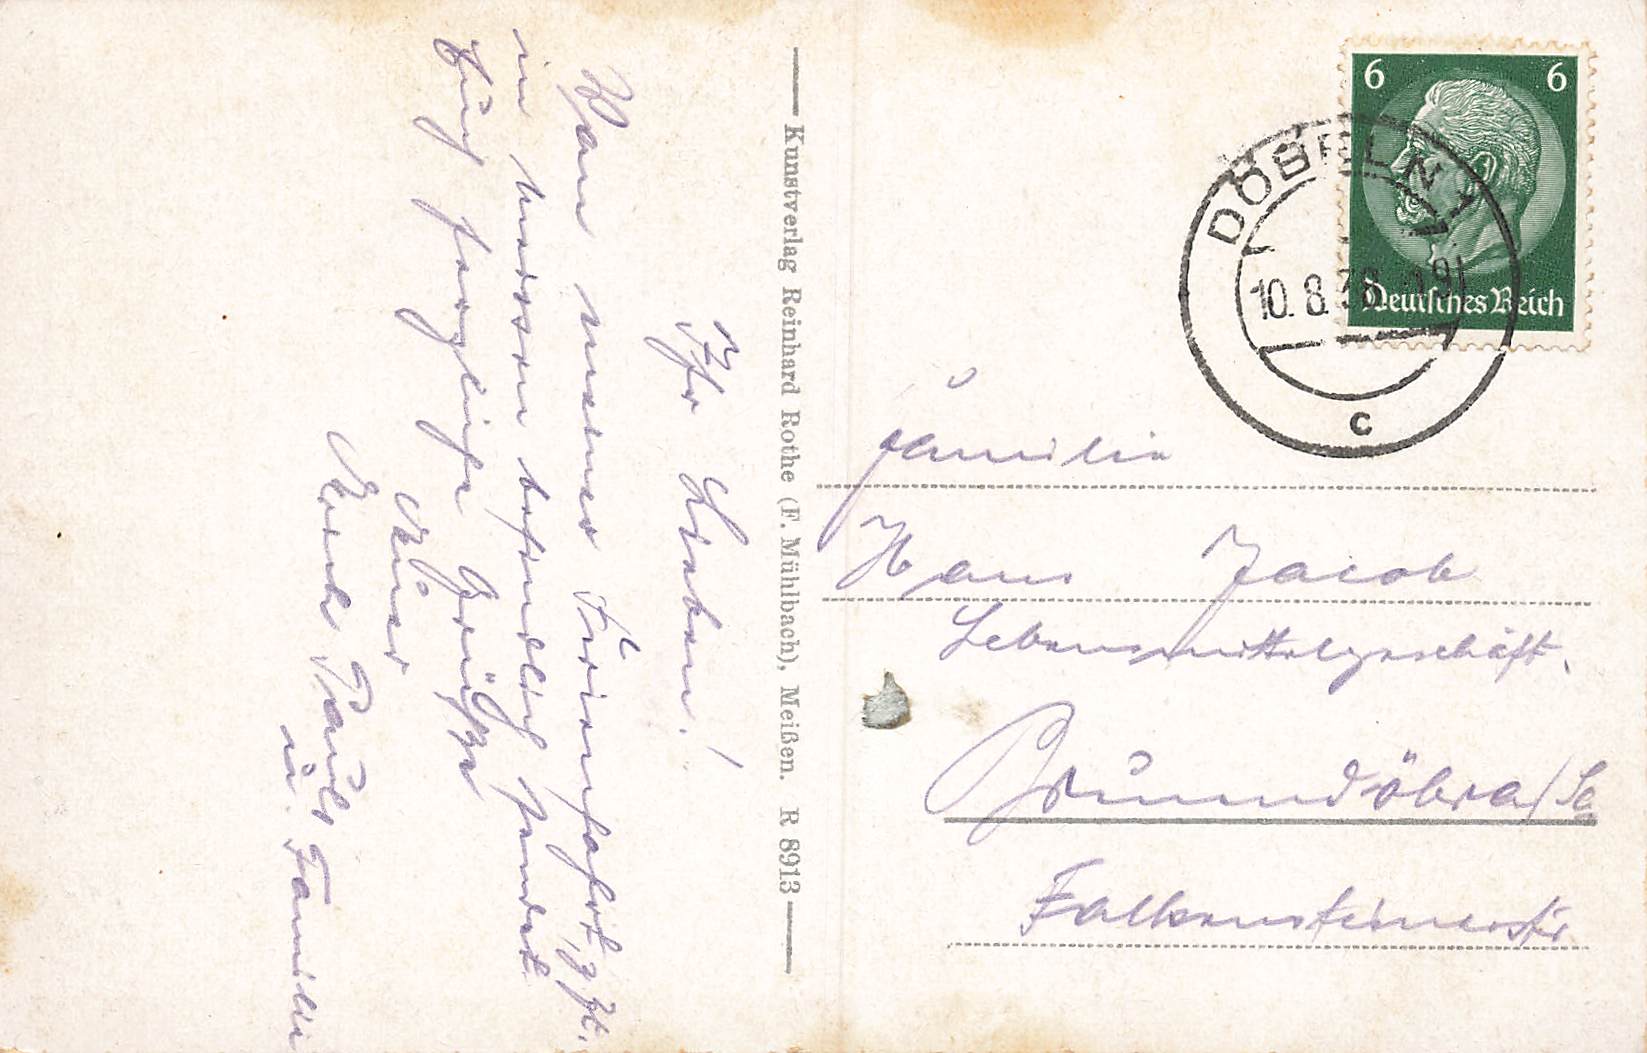 Ihr Lieben!
Von meiner Ferienfahrt, z. Zt.
in Meissen befindlich sendet
Euch herzliche Grüsse
Euer
Paul
u. Familie
Kunstverlag Reinhard Rothe (F. Mühlbach), Meißen. R 8913
6 6
Deutsches Reich
DÖBELN 1
10. 8. 38
c
Familie
Hans Jacob
Lebensmittelgeschäft.
Brunndöbra/Sa
Falkensteinerstr.